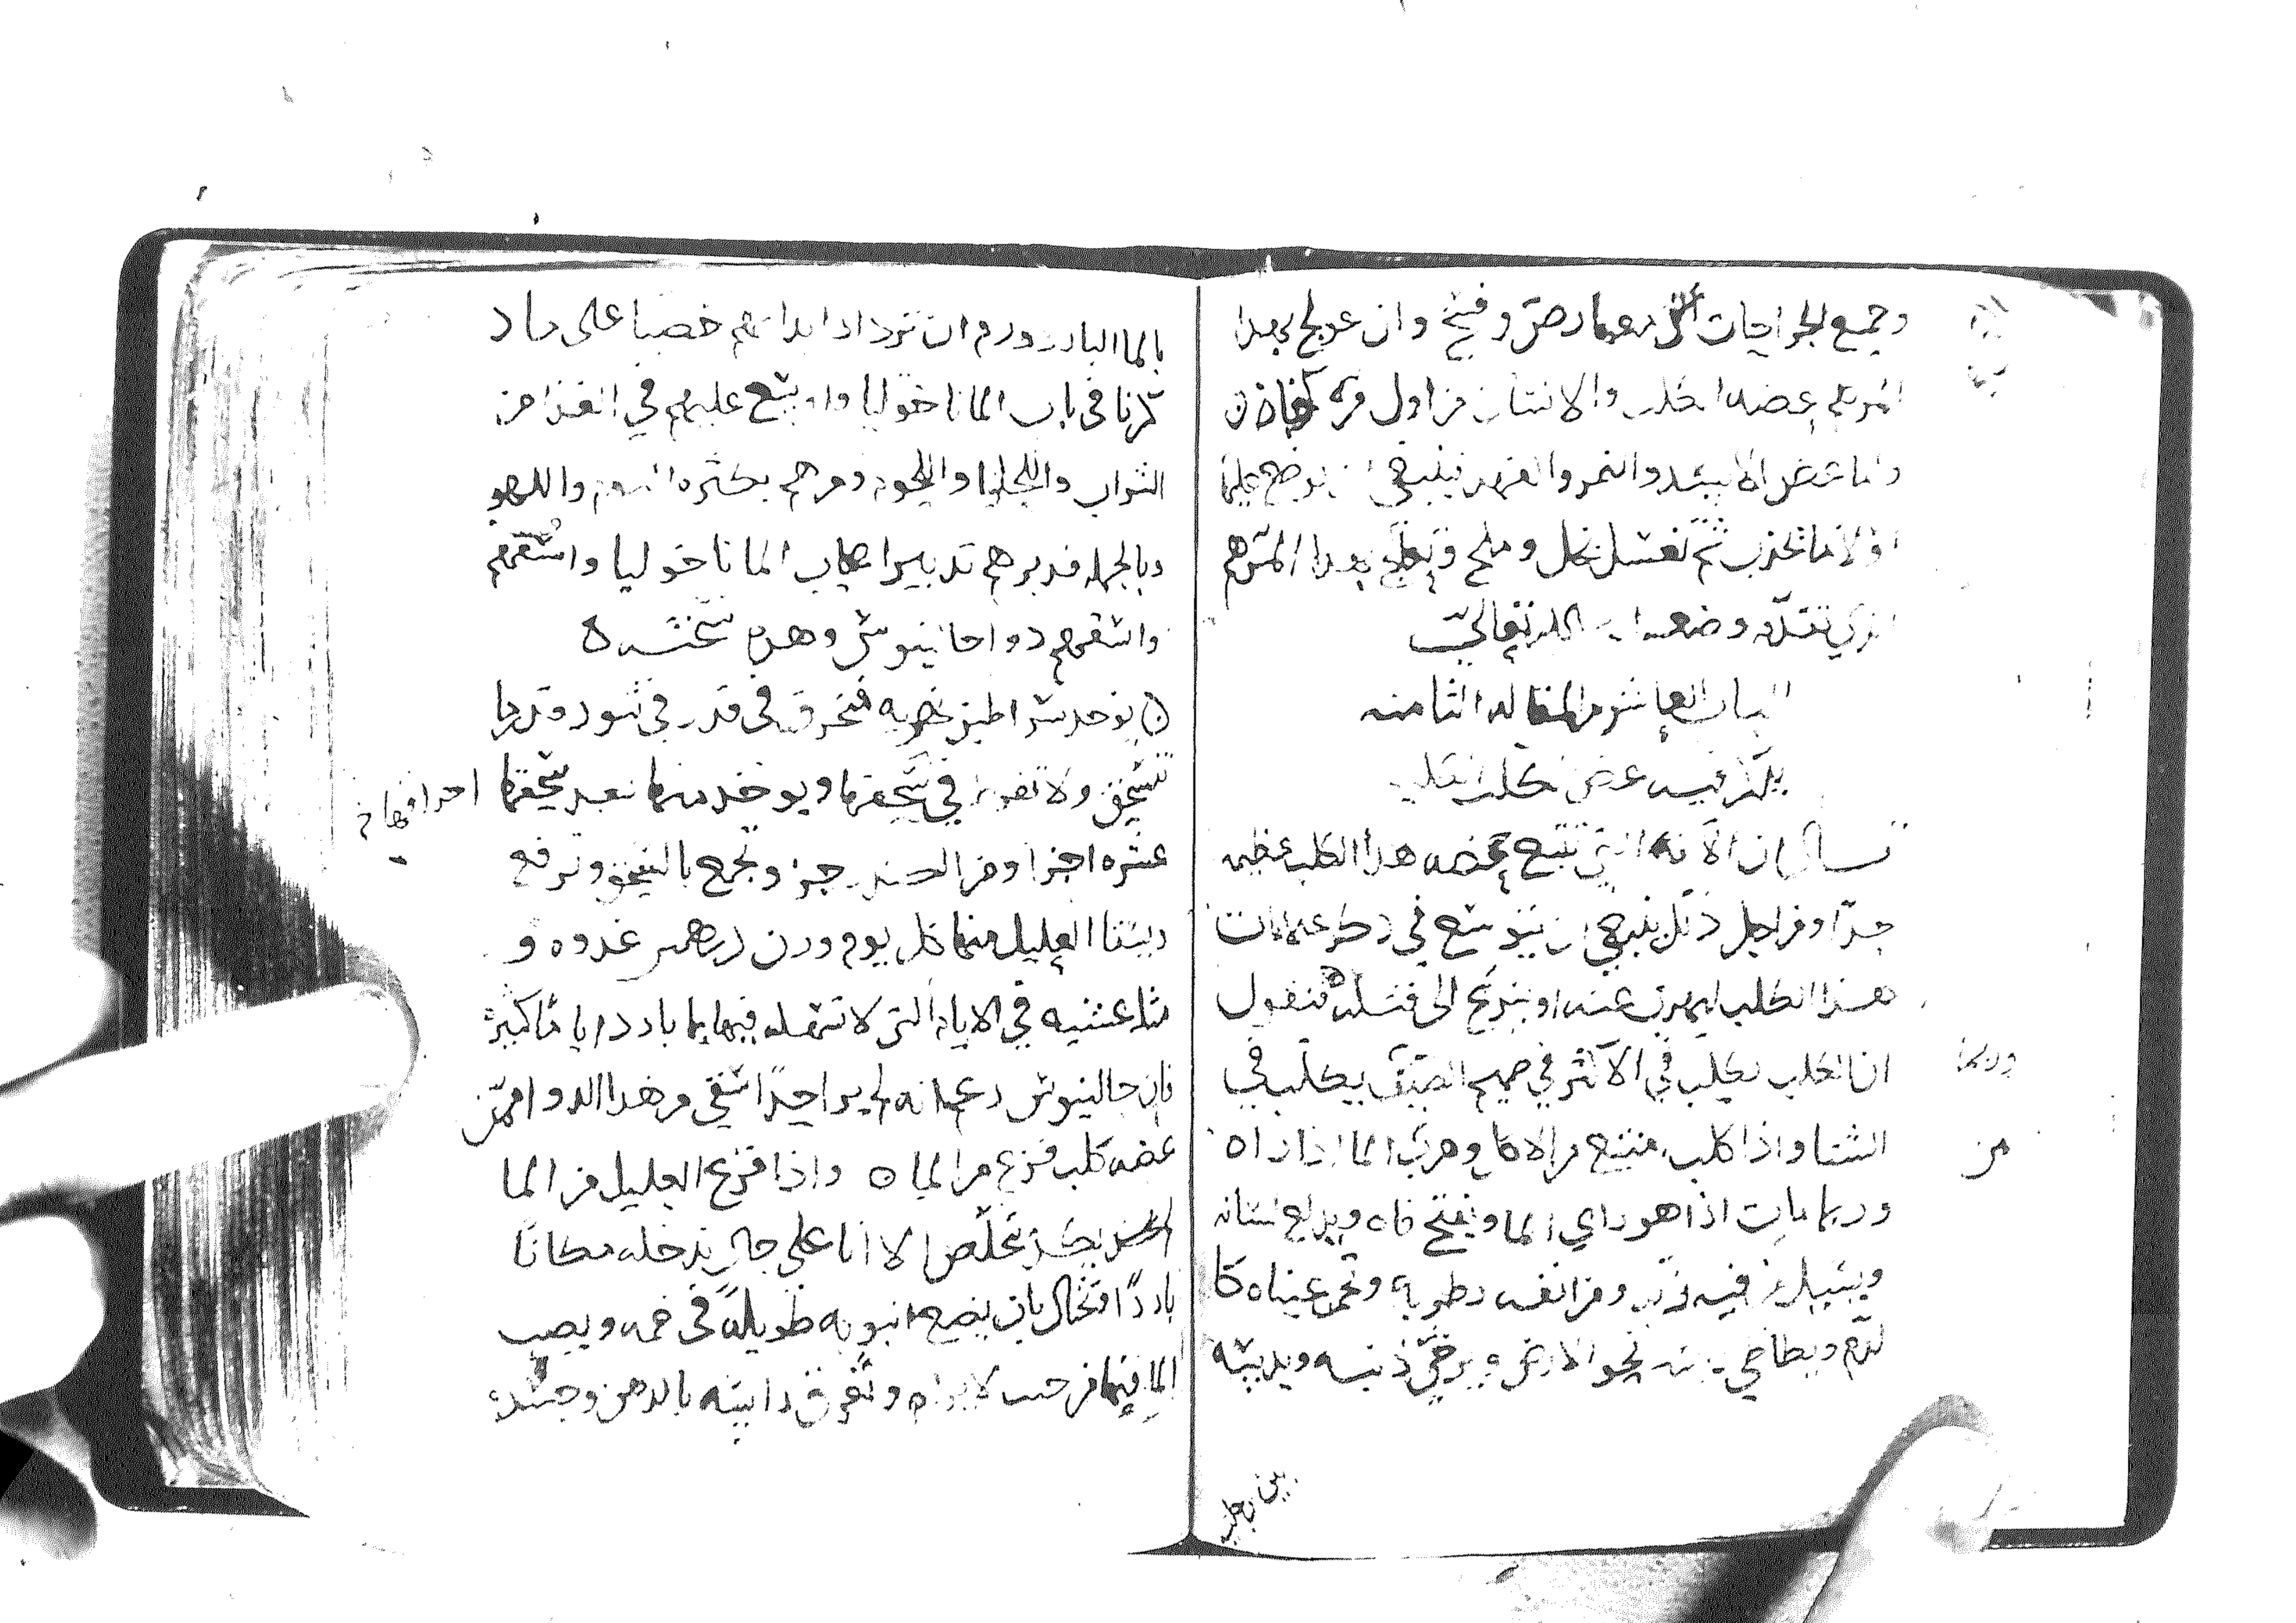 وجميع الجراحات التي معها رض وفسخ وان عولج بهذا
المرهم عضه الكلب والانسان من اول مره كفاه ن
واما عض الاسد والنمر والفهد فينبغي ان يوضع عليها
اولا ما تجذب ثم تغسل بخل وملح وتعالج بهذا المرهم
الذي تقدم وصفه ان الله تعالى
الباب العاشر من المقاله الثامنه
يذكر فيه عض الكلب الكلب
ان الافه التي تتبع عضه هذا الكلب عظيمه
جدا ومن اجل ذلك ينبغي ان نتوسع في ذكر علامات
هذا الكلب ليهرب عنه او يسرع الى قتله فنقول
ان الكلب يكلب في الاكثر في صميم الصيف يكلب في
وربما
الشتا واذا كلب امتنع من الاكل وهرب الما اذا راه
من
وربما مات اذا هو راي الما ويفتح فاه ويدلع لسانه
ويسيل من فيه زبد ومن انفه رطوبه وتحمر عيناه كا
لدم ويطاطي راسه نحو الارض ويرخي ذنبه ويدسه
بين رجليه
بالما البارد ورم ان تزداد ابدانهم خصبا على ما ذ
كرنا في باب المالنخوليا واوسع عليهم في الغذا من
الشراب والحلوا واللحوم ومرهم بكثره النوم واللهو
وبالجمله فدبرهم تدبير اصحاب المالنخوليا واسقهم
واسقهم دوا جالينوس وهذه نسخته ه
ن يوخذ سراطين نهريه فتحرق في قدر في تنور وقدر ما
تنسحق ولا تفرط في سحقها ويوخذ منها بعد سحقها
احراقها خ
عشره اجزا ومن الكندر جز وتجمع بالسحق وترفع
ويسقا العليل منها كل يوم وزن درهمين غدوه و
مثله عشيه في الايام التي لا تتمله فيها بما بارد اياما كثيره
فان جالينوس زعم انه لم ير احدا سقي من هذا الدوا ممن
عضه كلب فزع من الما ه واذا فزع العليل من الما
لم يكد يتخلص الا انا على حال ندخله مكانا
باردا ونحتال بان يضع انبوبه طويله في فمه ويصب
الما فيها من حيث لا يراه وتغرق راسه بالدهن وجسده